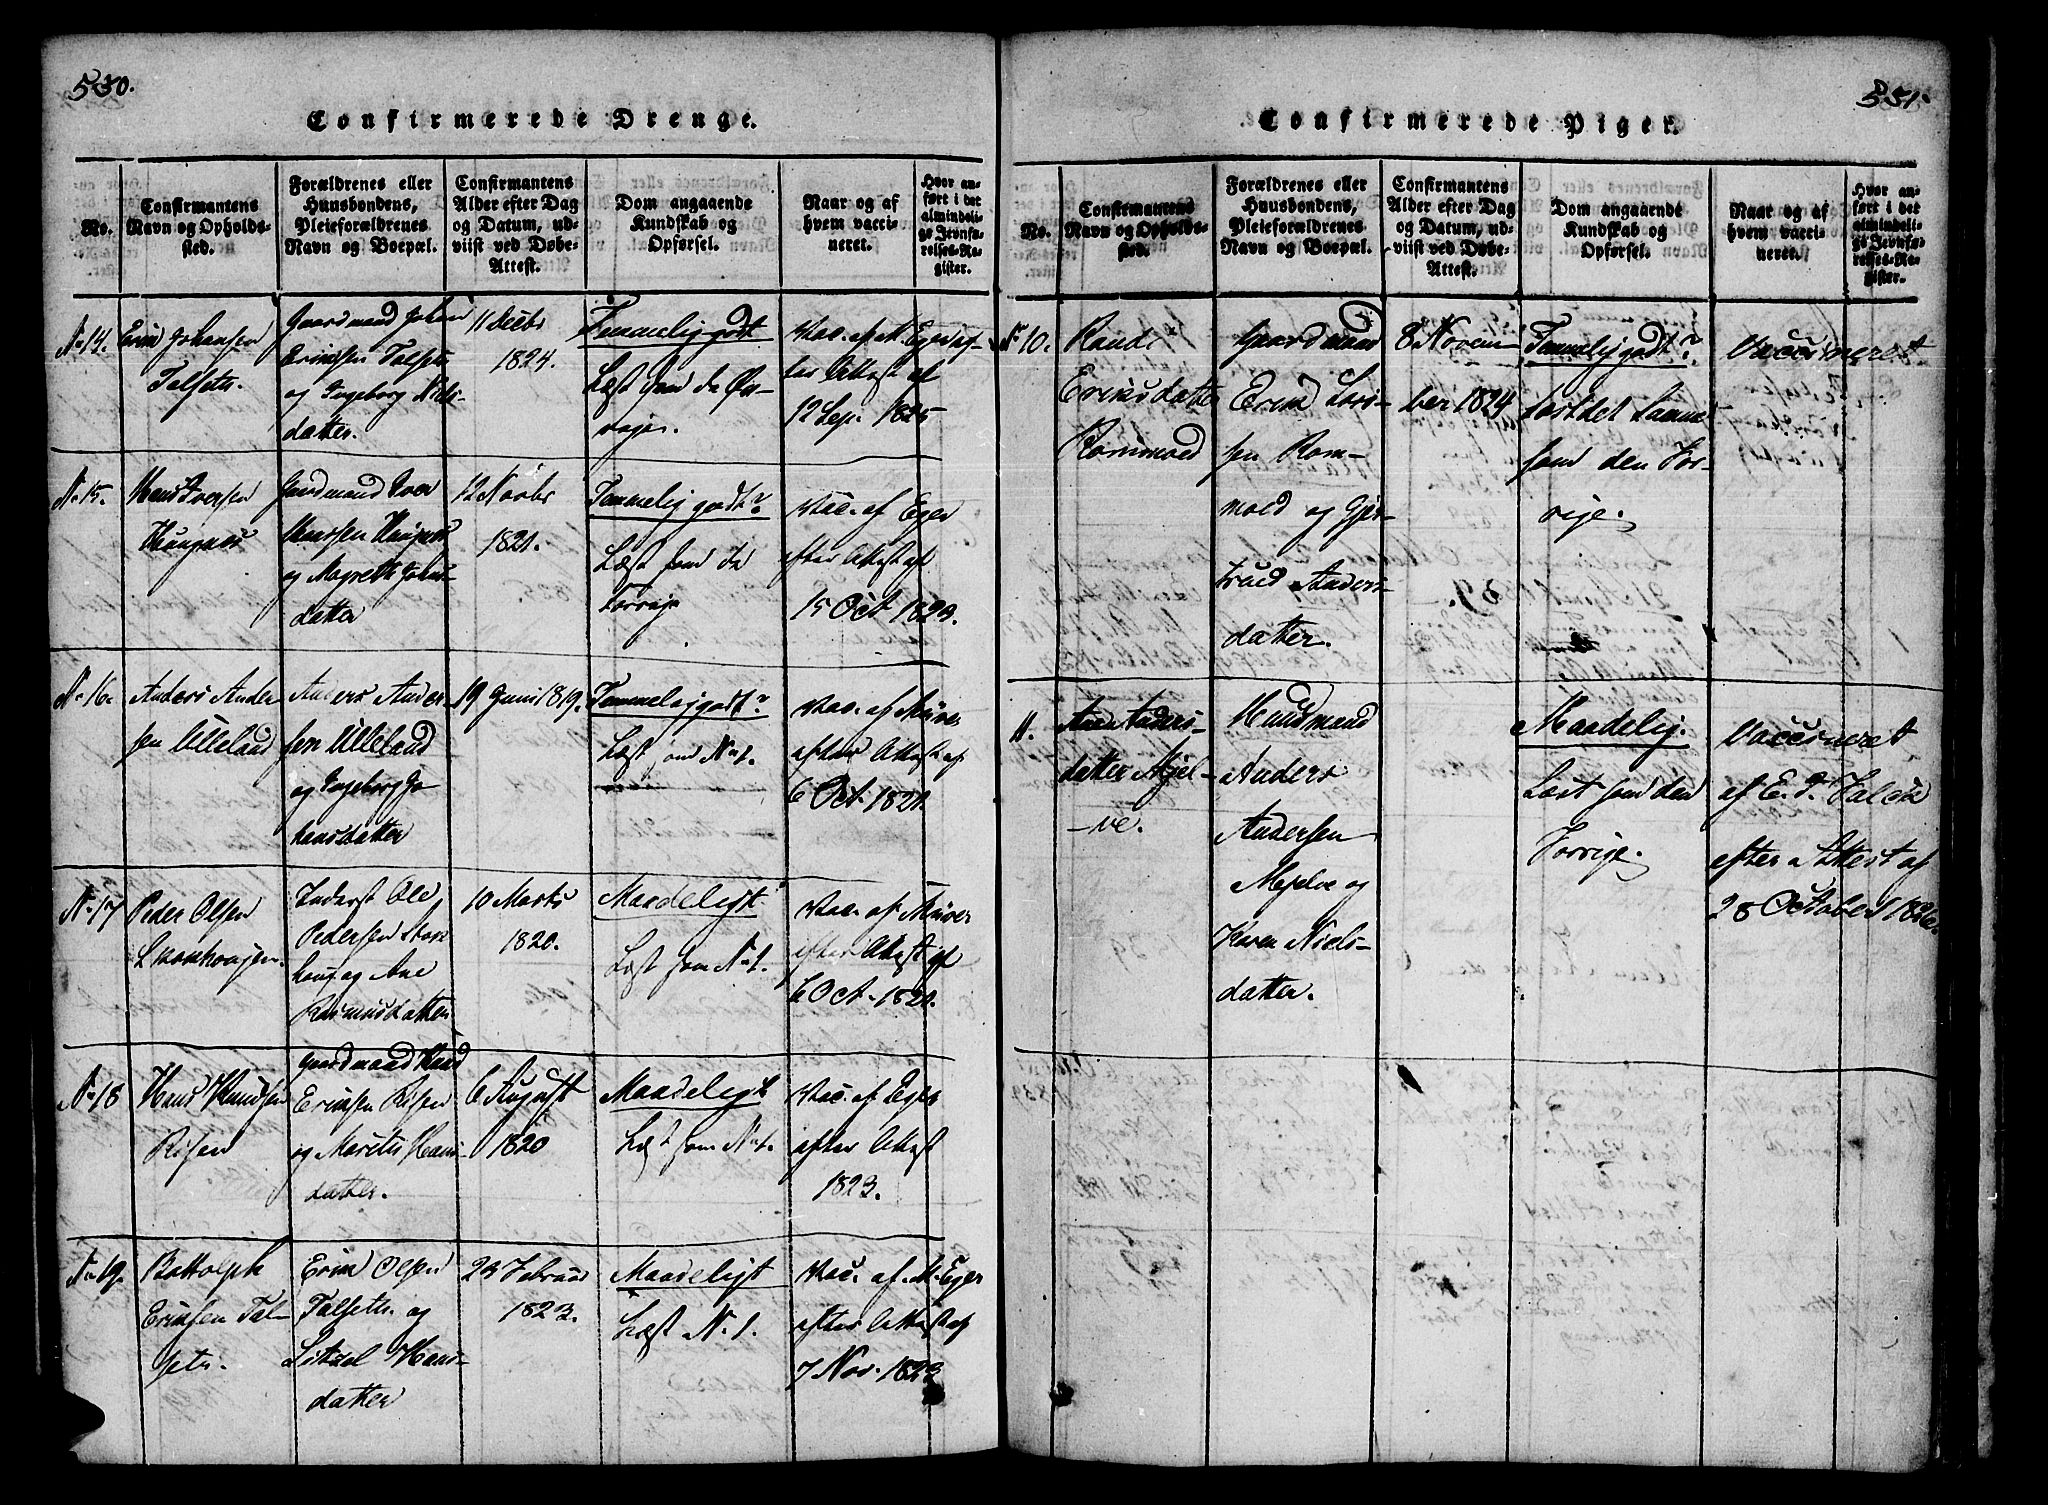 530.
Confirmerede Drenge.
No.
Confirmantens
Navn og Opholds-
sted.
Forældrenes eller
Huusbondens,
Pleieforældrenes
Navn og Boepæl.
Confirmantens
Alder efter Dag
og Datum, ud-
viist ved Døbe-
Attest.
Dom angaaende
Kundskab og
Opførsel.
Naar og af
hvem vacci-
neret.
Hvor an-
ført i det
almindeli-
ge Jevnfø-
relses-Re-
gister.
N. 14.
Erik Johansen
Talseth.
Gaardmand Johan
Eriksen Talseth
og Ingeborg Niels-
datter.
11 Decbr
1824.
Temmelig godt
Læst som de Øv-
rige.
Vac. af M. Eger ef-
ter Attest af
12 Sep. 1825
N. 15.
Hans Iversen
Haugnes
Gaardmand Iver
Hansen Haugnes
og Magreth Johns-
datter
12 Novbr
1821.
Temmelig godt?
Læst som de
forrige
Vac. af Eger
efter Attest af
15 Oct 1823.
N. 16.
Anders Ander
sen Ulleland
Anders Ander-
sen Ulleland
og Ingeborg Jo
hansdatter
19 Juni 1819.
Temmelig godt?
Læst som N. 1.
Vac. af
efter Attest af
6 Oct. 1821.
N. 17
Peder Olsen
Inderst Ole
Pedersen
haug og Ane
Rasmusdatter
10 Marts
1820.
Maadeligt
Læst som N. 1.
Vac. af
efter Attest af
6 Oct. 1821.
N. 18
Hans Knudsen
Risen
Gaardmand Knud
Eriksen Risen
og Marethe Hans-
datter.
6 August
1820
Maadeligt
Læst som N. 1.
Vac. af Eger
efter Attest
1823.
N. 19.
Bottolph
Eriksen Tal-
seth.
Erik Olsen
Talseth og
Sitzel Hans-
datter
23 Februar
1823.
Maadeligt
Læst N. 1.
Vac. af M. Eger
efter Attest af
7 Nov. 1823
551.
Confirmerede Piger.
No.
Confirmantens
Navn og Opholds-
sted.
Forældrenes eller
Huusbondens,
Pleieforældrenes
Navn og Boepæl.
Confirmantens
Alder efter Dag
og Datum, ud-
viist ved Døbe-
Attest.
Dom angaaende
Kundskab og
Opførsel.
Naar og af
hvem vacci-
neret.
Hvor an-
ført i det
almindeli-
ge Jevnfø-
relses-Re-
gister.
N. 10.
Randi
Eriksdatter
Rommoed
Gaardmand
Erik Lars-
sen Rom-
moed og Gjer-
trued Anders-
datter.
8 Novem
ber 1824
39.
Temmelig godt?
Læst det Samme
som den For-
rige.
Vaccineret
11.
Ane Anders-
datter Mjel-
ve.
Huusmand
Anders
Andersen
Mjelve og
Karen Niels-
datter.
Maadelig.
Læst som den
Forrige.
Vaccineret
af E. I. Falck
efter Attest af
28 October 1826.